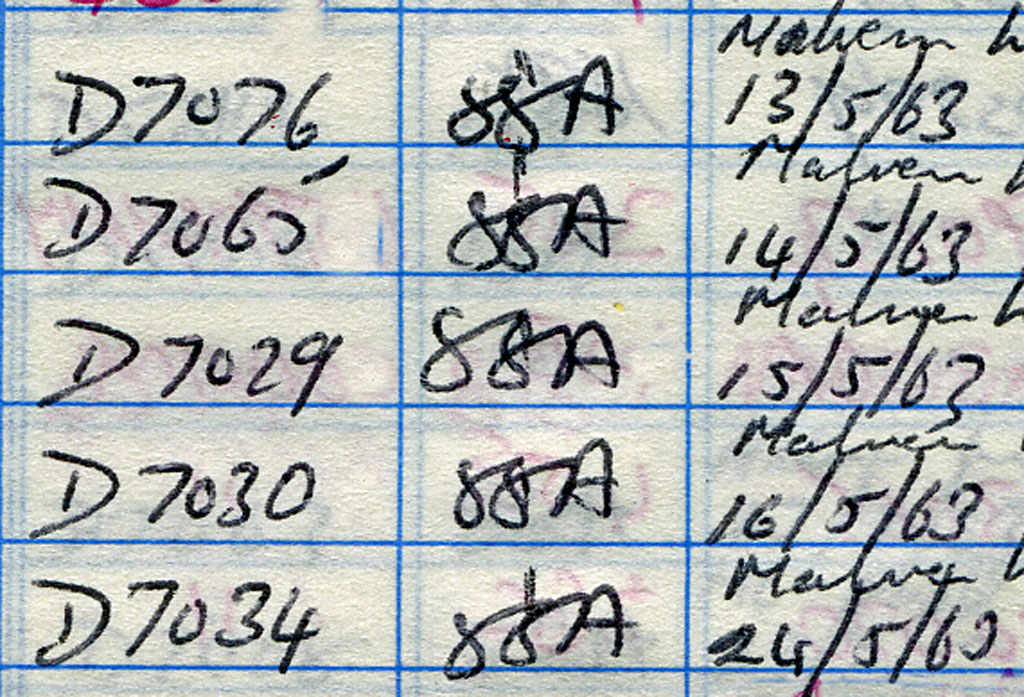 D7076 88A Malvern
13/5/63
D7065 88A Malvern
14/5/63
D7029 88A Malvern
15/5/63
D7030 88A Malvern
16/5/63
D7034 88A Malvern
24/5/63